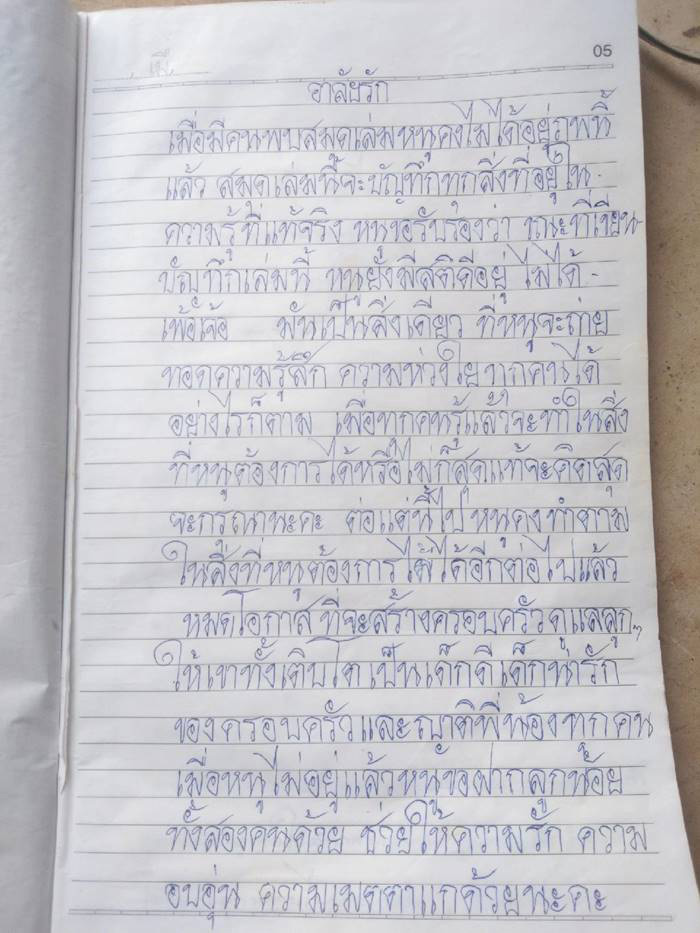 05
อาลัยรัก
เมื่อมีคนพบสมุดเล่มหนูคงไม่ได้อยู่ภพนี้
แล้ว สมุดเล่มนี้จะบันทึกทุกสิ่งที่อยู่ใน
ความรู้ที่แท้จริง หนูขอรับรองว่า ขณะที่เขียน
บันทึกเล่มนี้ หนูยังมีสติดีอยู่ ไม่ได้
เพ้อเจ้อ มันเป็นสิ่งเดียว ที่หนูจะถ่าย
ทอดความรู้สึก ความห่วงใยทุกคนได้
อย่างไรก็ตาม เมื่อทุกคนรู้แล้วจะทำในสิ่ง
ที่หนูต้องการได้หรือไม่ก็สุดแท้จะคิดสุด
จะกรุณานะคะ ต่อแต่นี้ไปหนูคงทำตาม
ในสิ่งที่หนูต้องการไม่ได้อีกต่อไปแล้ว
หมดโอกาสที่จะสร้างครอบครัวดูแลลูกๆ
ให้เขาทั้งเติบโตเป็นเด็กดีเด็กน่ารัก
ของครอบครัวและญาติพี่น้องทุกคน
เมื่อหนูไม่อยู่แล้วหนูขอฝากลูกน้อย
ทั้งสองคนด้วย ช่วยให้ความรัก ความ
อบอุ่น ความเมตตาแกด้วยนะคะ